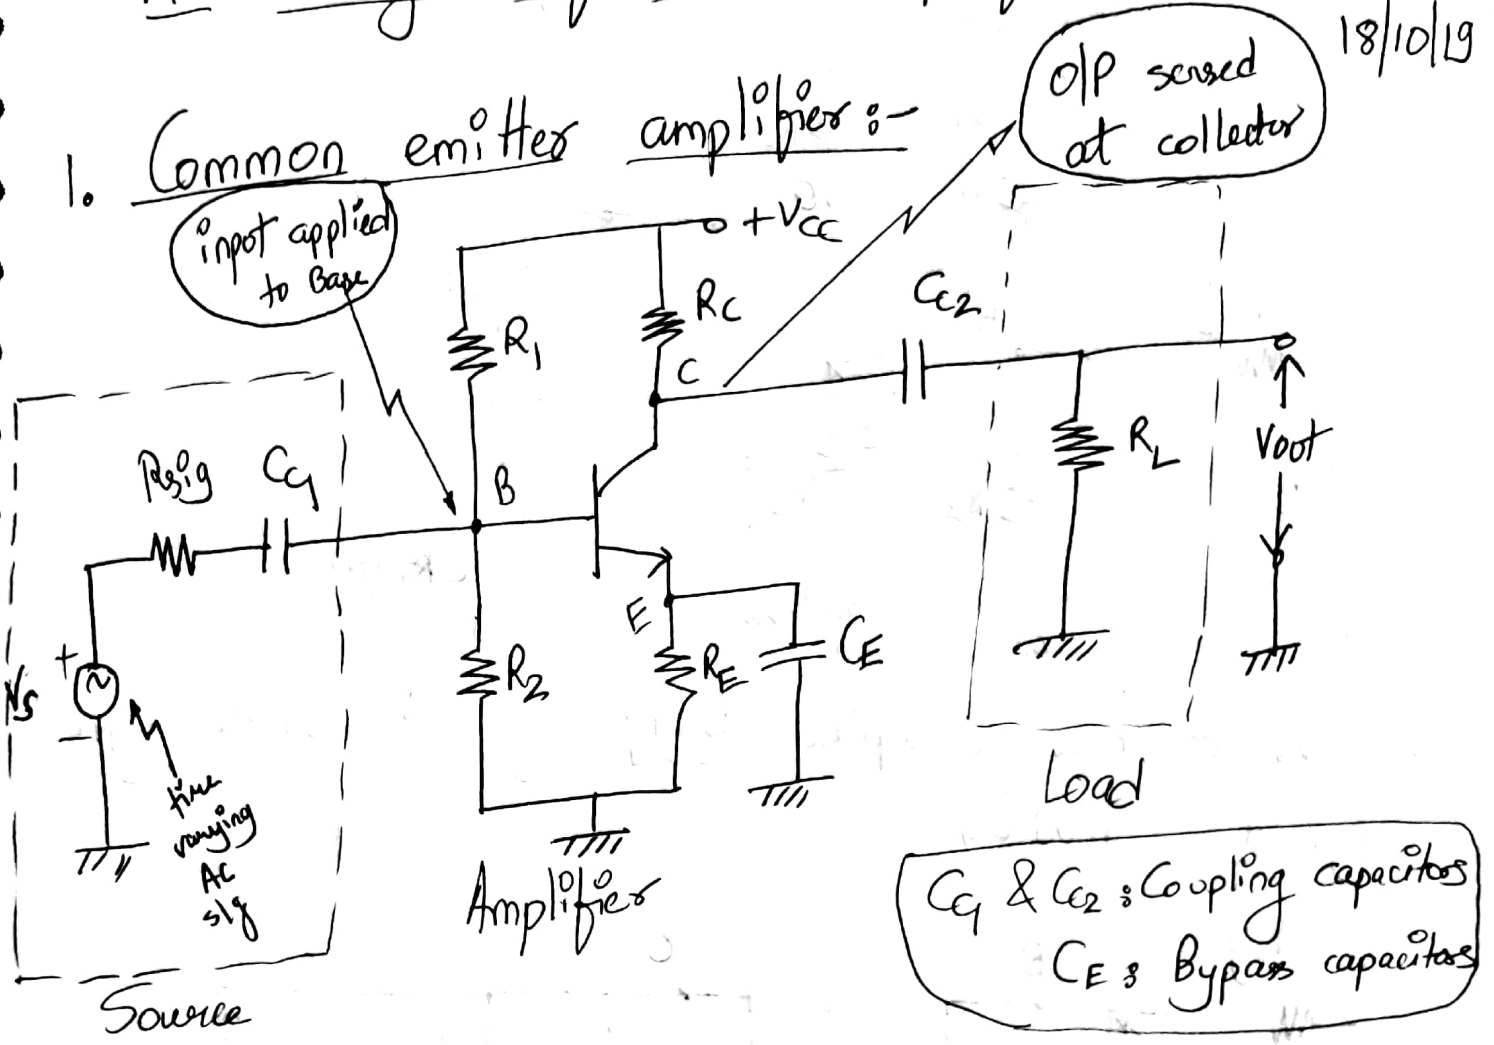 18/10/19
1. Common emitter amplifier :-
O/P sensed
at collector
input applied
to Base
+VCC
R1
RC
CC2
C
B
Rsig
CC1
RL
Vout
E
R2
RE
CE
+
Vs
-
time
varying
AC
s/g
Load
Amplifier
Source
CC1 & CC2 : Coupling capacitors
CE : Bypass capacitors